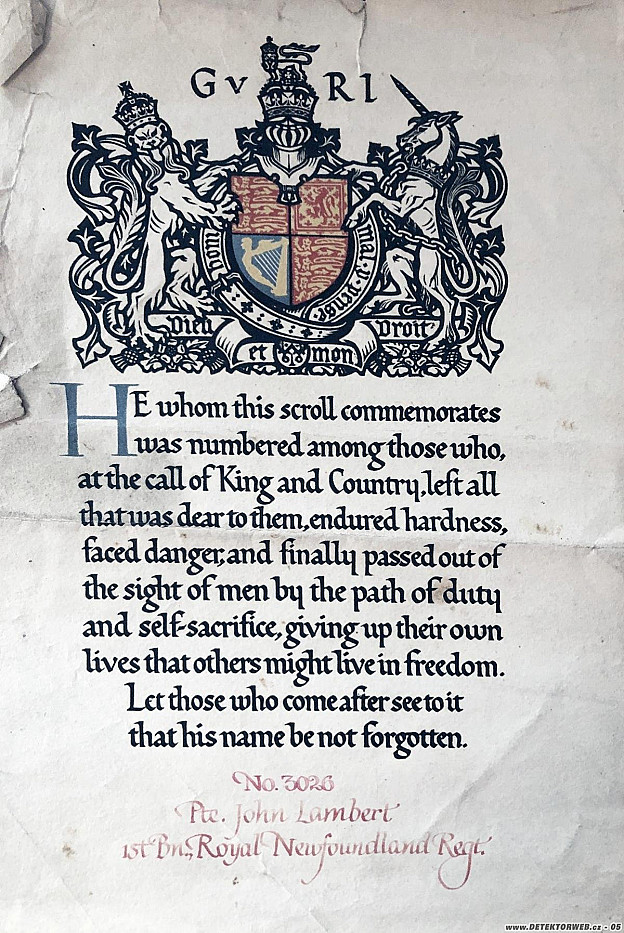 GV RI
Hon
mal·y·pense
Dieu Droit
et mon
HE whom this scroll commemorates
was numbered among those who,
at the call of King and Country, left all
that was dear to them, endured hardness,
faced danger, and finally passed out of
the sight of men by the path of duty
and self-sacrifice, giving up their own
lives that others might live in freedom.
Let those who come after see to it
that his name be not forgotten.
No. 3026
Pte. John Lambert
1st Bn., Royal Newfoundland Regt.
www.DETEKTORWEB.cz - 05